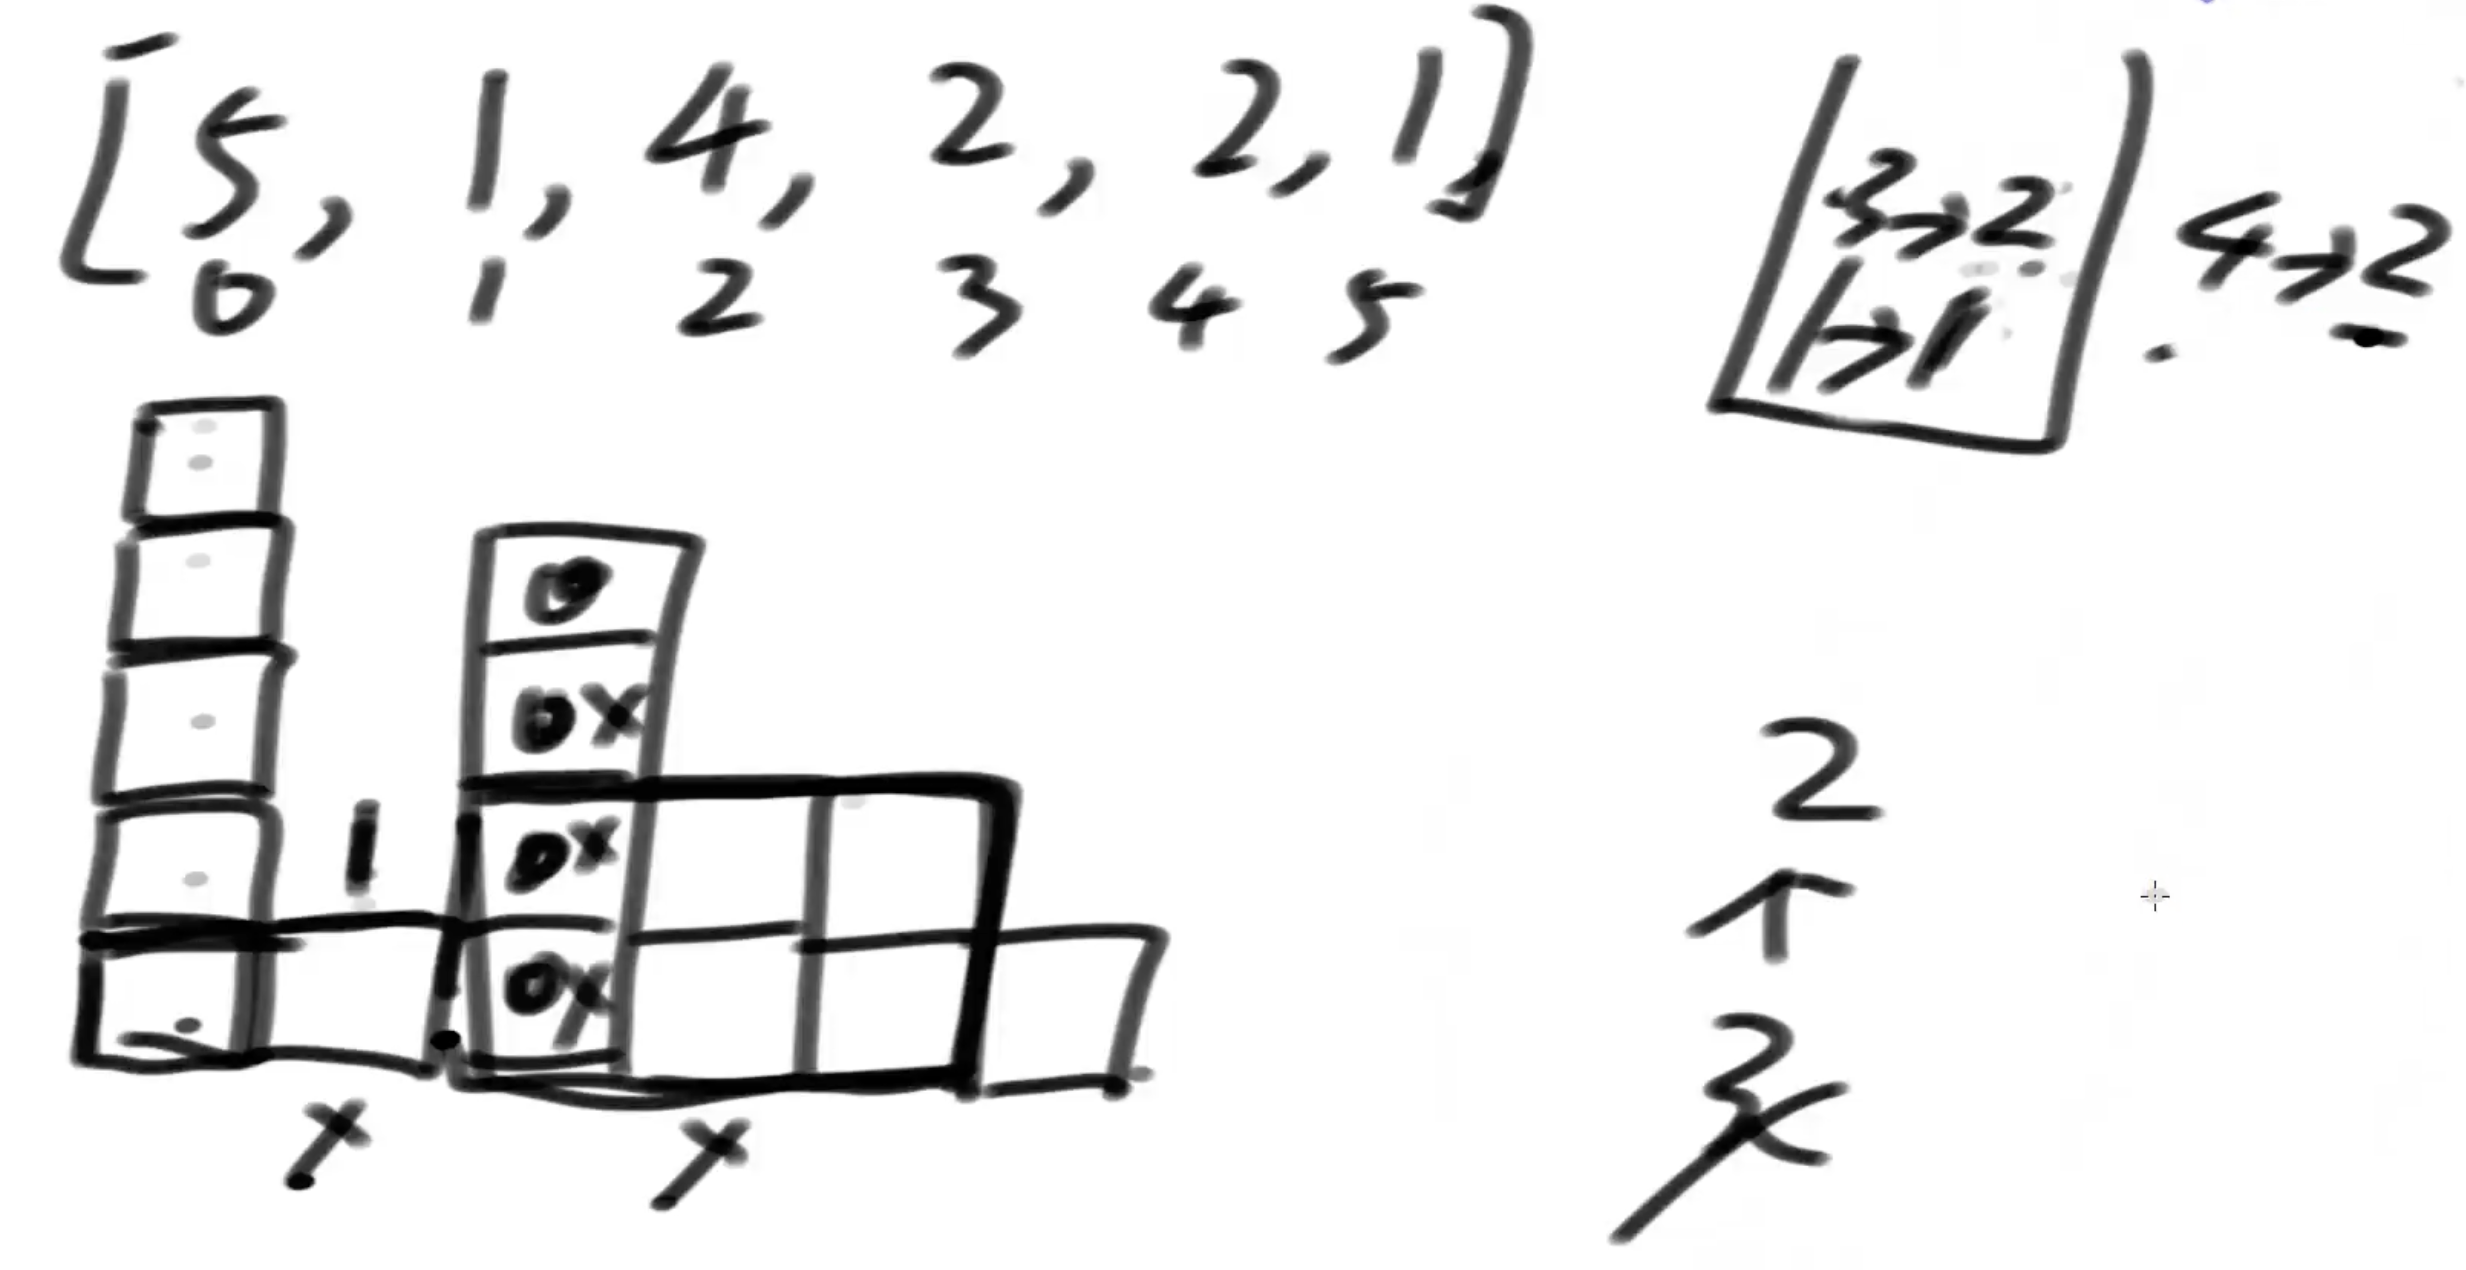 [5, 1, 4, 2, 2, 1]
0 1 2 3 4 5
3→2
4→2
1→1
0
0x
1
0x
0x
x
x
2
↑
3